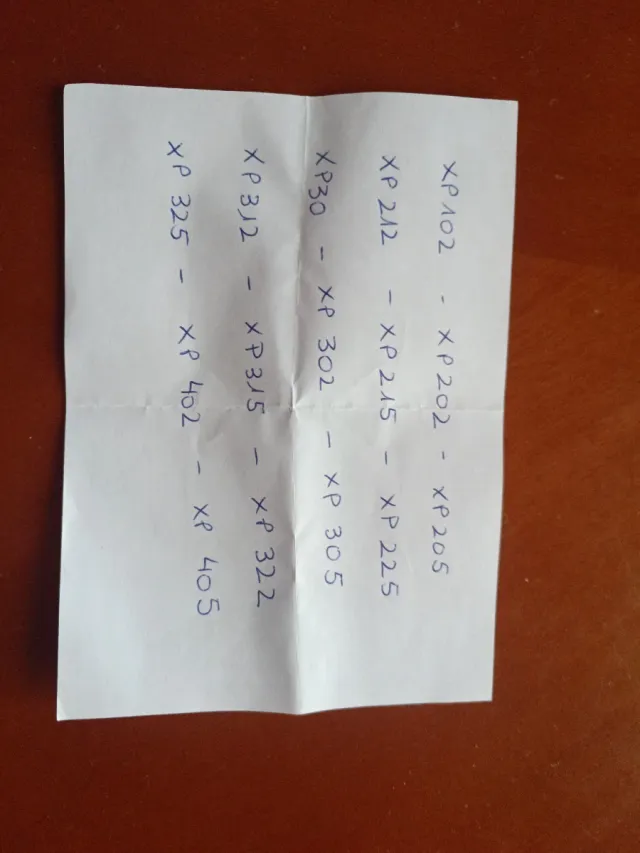 XP102 - XP202 - XP205
XP212 - XP215 - XP225
XP30 - XP302 - XP305
XP312 - XP315 - XP322
XP325 - XP402 - XP405